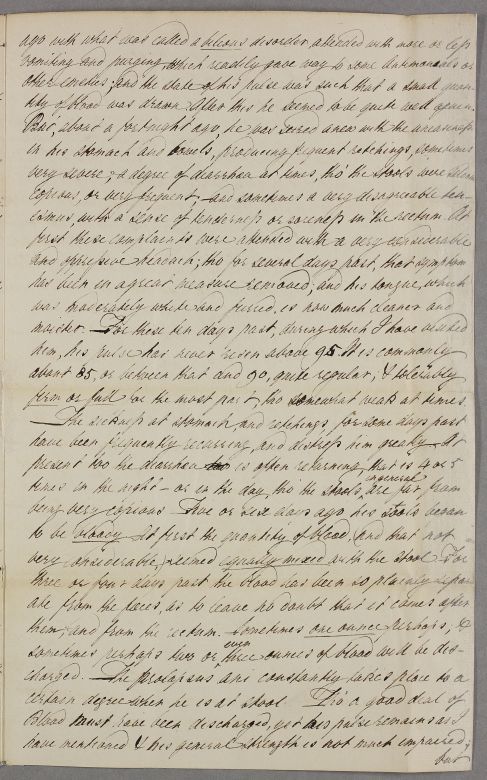 ago with what was called a bilious disorder attended with more or less
vomiting and purging which readily gave way to some antimonials or
other emetics, and the state of his pulse was such that a small quan-
tity of blood was drawn. After this he seemed to be quite well again.
But, about a fortnight ago, he was seized anew with the uneasiness
in his stomach and bowels, producing frequent retchings, sometimes
very severe; a degree of diarrhœa at times, tho' the stools were seldom
copious, or very frequent, and sometimes a very disagreeable ten-
esmus, with a sense of tenderness or soreness in the rectum. At
first these complaints were attended with a very considerable
and oppressive headach; tho' for several days past, that symptom
has been in a great measure removed; and his tongue, which
was moderately white and furred, is now much cleaner and
moister. For these ten days past, during which I have visited
him, his pulse has never risen above 95. It is commonly
about 85, or between that and 90, quite regular, & tolerably
firm or full for the most part, tho' somewhat weak at times.
The sickness at stomach, and retchings, for some days past
have been frequently recurring, and distress him greatly. At
present too the diarrhœa is often returning, that is 4 or 5
times in the night - or in the day, tho' the stools, in general are far from
being very copious. Five or six days ago his stools began
to be bloody. At first the quantity of blood, and that not
very considerable, seemed equally mixed with the stool. For
three or four days past the blood has been so plainly separ-
ate from the fæces, as to leave no doubt that it comes after
them, and from the rectum. Sometimes one ounce perhaps, &
sometimes perhaps two or even three ounces of blood will be dis-
charged. The prolapsus ani constantly takes place to a
certain degree when he is at stool. Tho' a good deal of
blood must have been discharged, yet his pulse remains as I
have mentioned & his general strength is not much impaired;
but